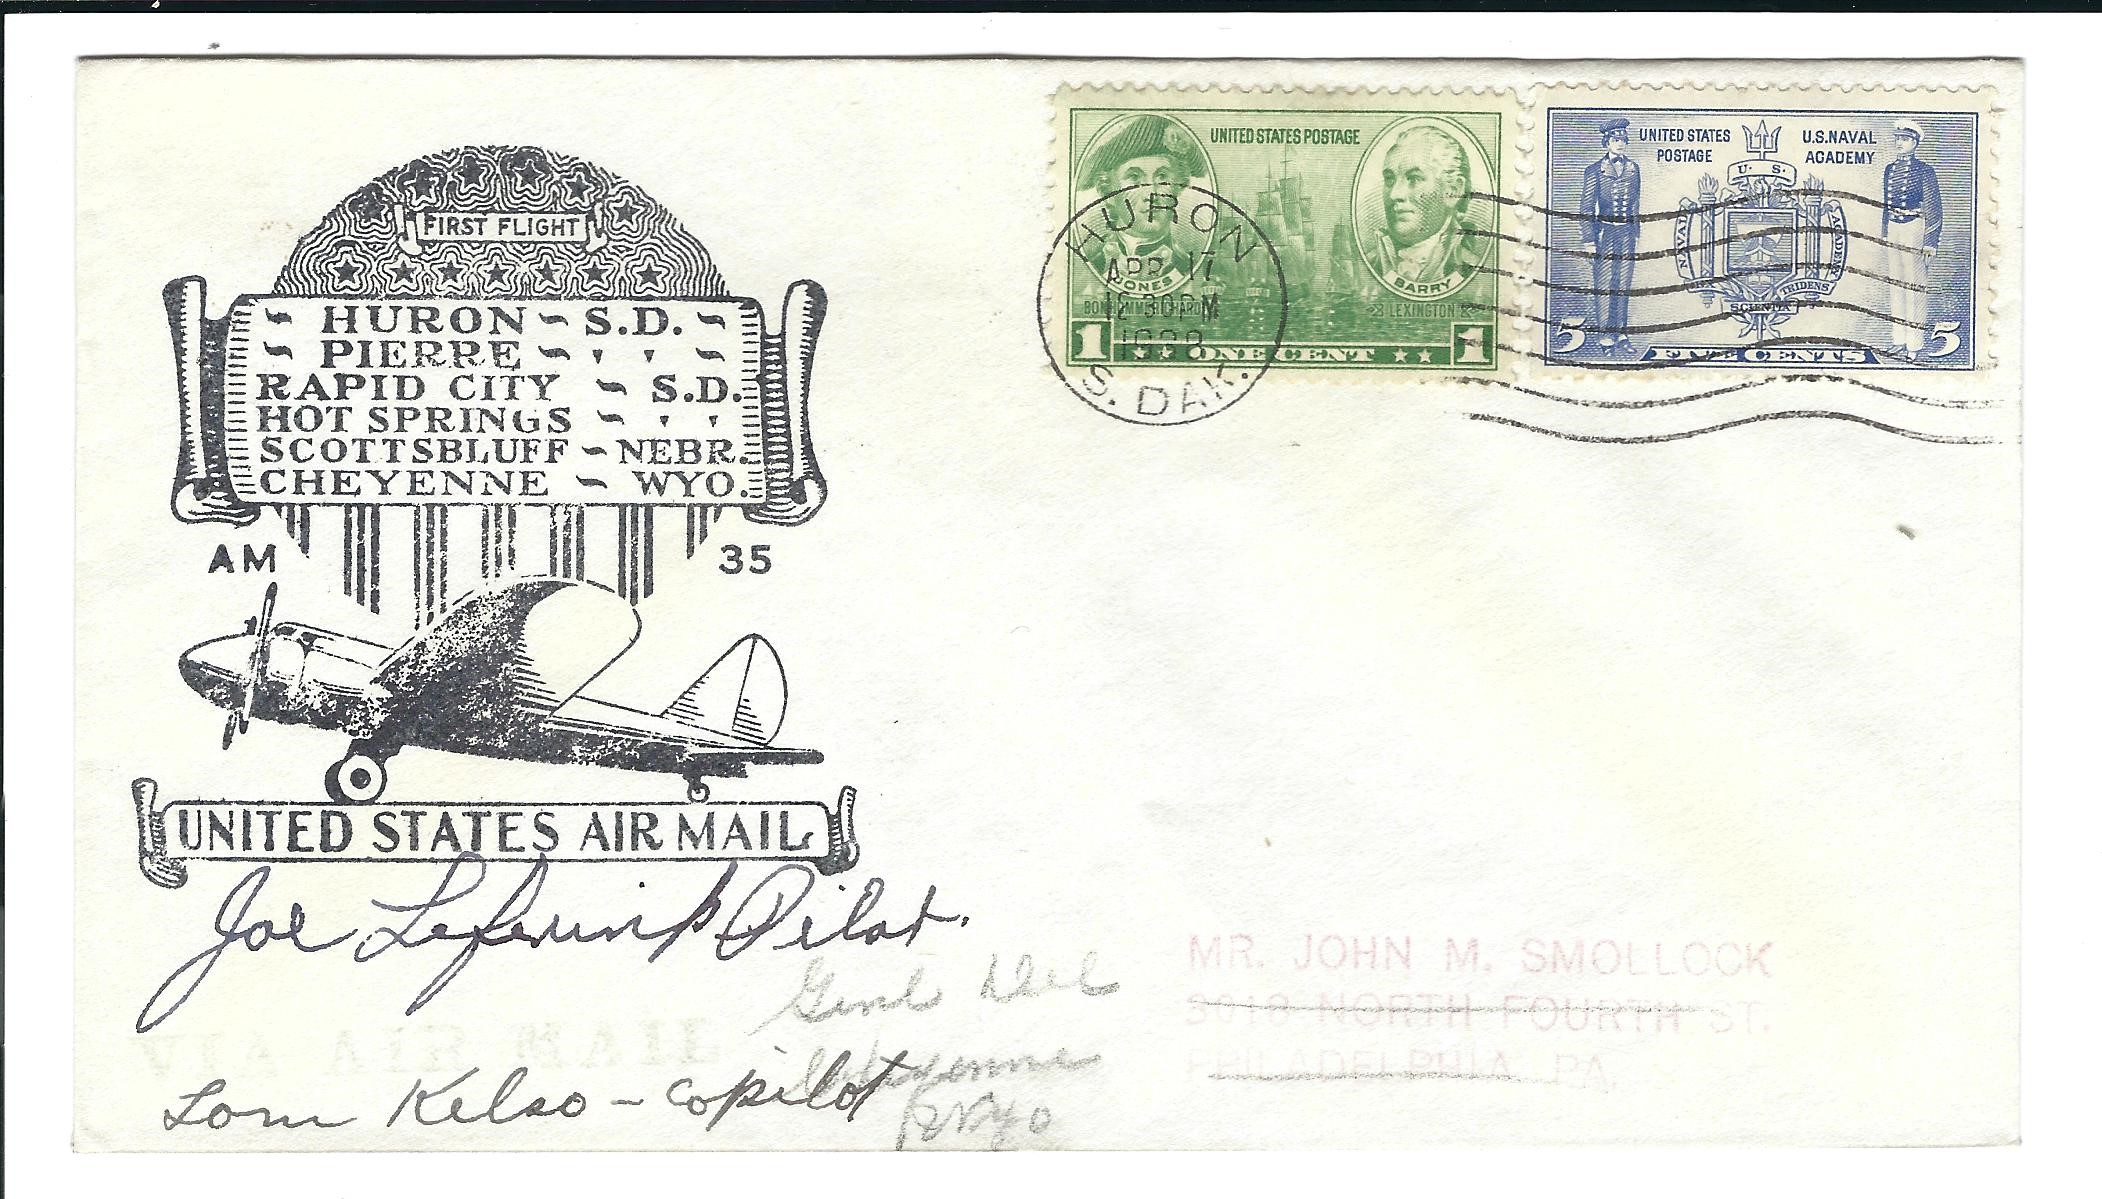 FIRST FLIGHT
~ HURON ~ S.D. ~
~ PIERRE ~ " " ~
RAPID CITY ~ S.D.
HOT SPRINGS ~ " "
SCOTTSBLUFF ~ NEBR.
CHEYENNE ~ WYO.
AM 35
UNITED STATES AIR MAIL
Joe Pilot.
Lorn Kelso - copilot
VIA AIR MAIL
Genl Del
Cheyenne
Wyo
UNITED STATES POSTAGE
JONES
BARRY
BON HOMME RICHARD
LEXINGTON
1 ONE CENT 1
HURON
APR 17
12 30 PM
1938
S. DAK.
UNITED STATES POSTAGE
U.S. NAVAL ACADEMY
U. S.
NAVAL ACADEMY
SCIENTIA TRIDENS
5 FIVE CENTS 5
MR. JOHN M. SMOLLOCK
3018 NORTH FOURTH ST.
PHILADELPHIA PA.